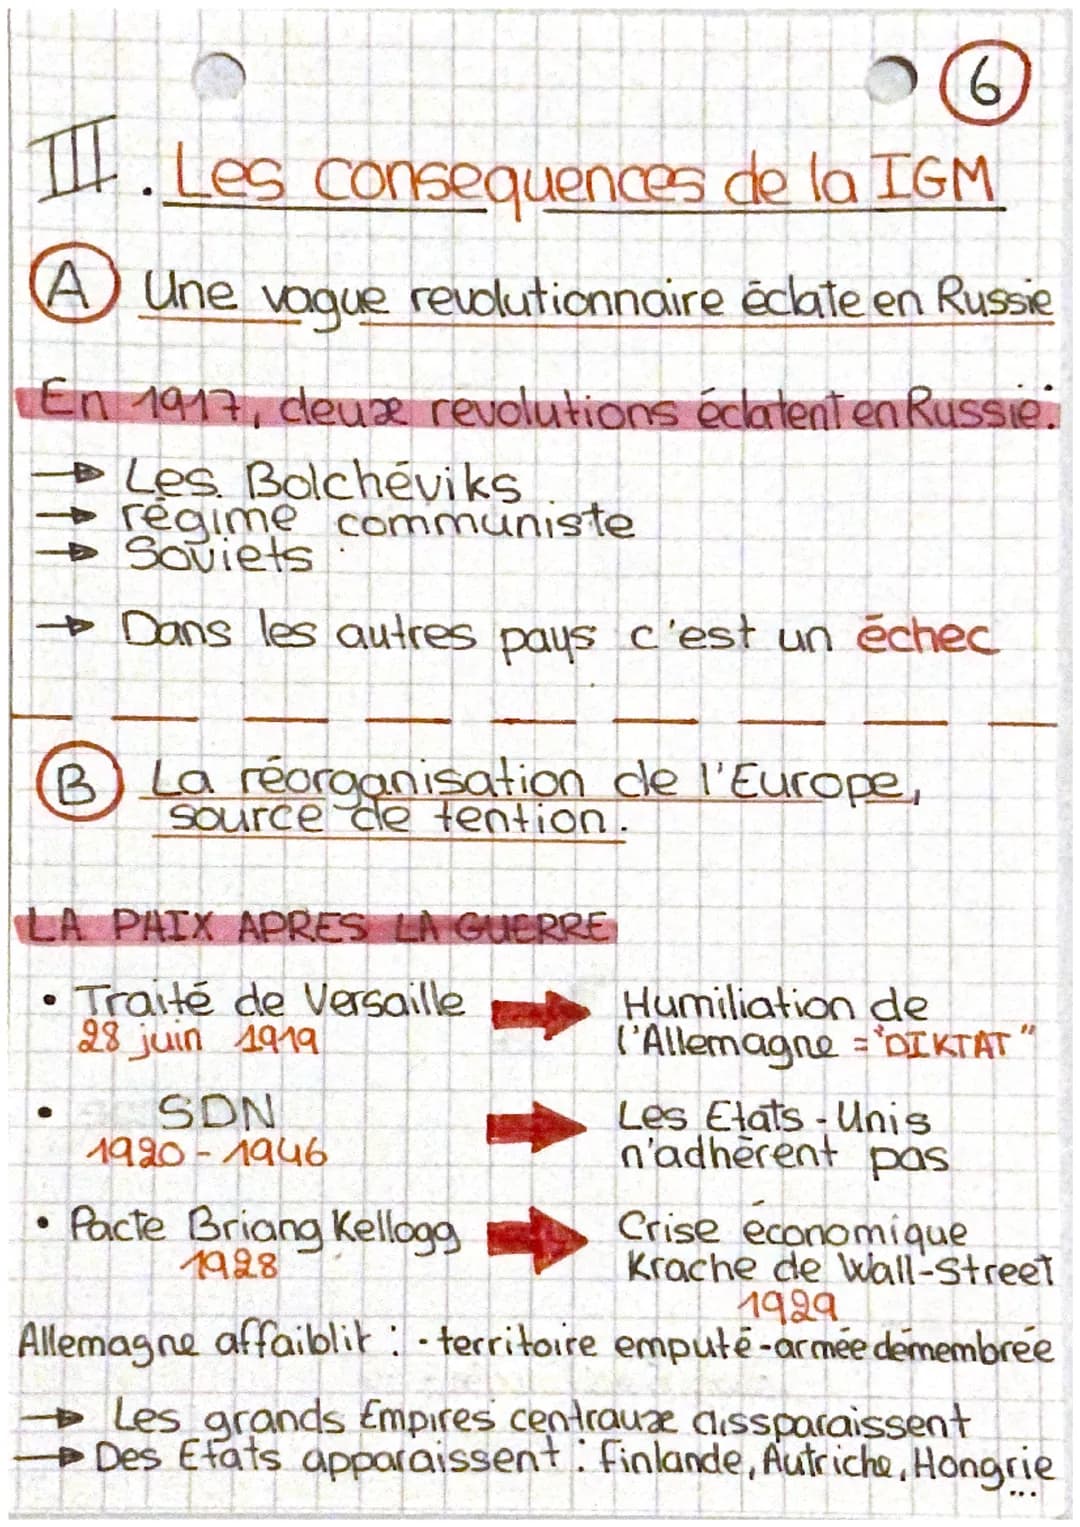 6
III. Les consequences de la IGM
A Une vague revolutionnaire éclate en Russie
En 1917, deux revolutions éclatent en Russie:
→ Les Bolchéviks
→ régime communiste
→ Soviets
→ Dans les autres pays c'est un échec
B La réorganisation de l'Europe,
source de tention.
LA PAIX APRES LA GUERRE
• Traité de Versaille → Humiliation de
28 juin 1919 l'Allemagne = "DIKTAT"
• SDN → Les Etats-Unis
1920-1946 n'adhèrent pas
• Pacte Briang Kellogg → Crise économique
1928 Krache de Wall-Street
1929
Allemagne affaiblit : - territoire emputé - armée démembrée
→ Les grands Empires centraux dissparaissent
→ Des Etats apparaissent : Finlande, Autriche, Hongrie
...